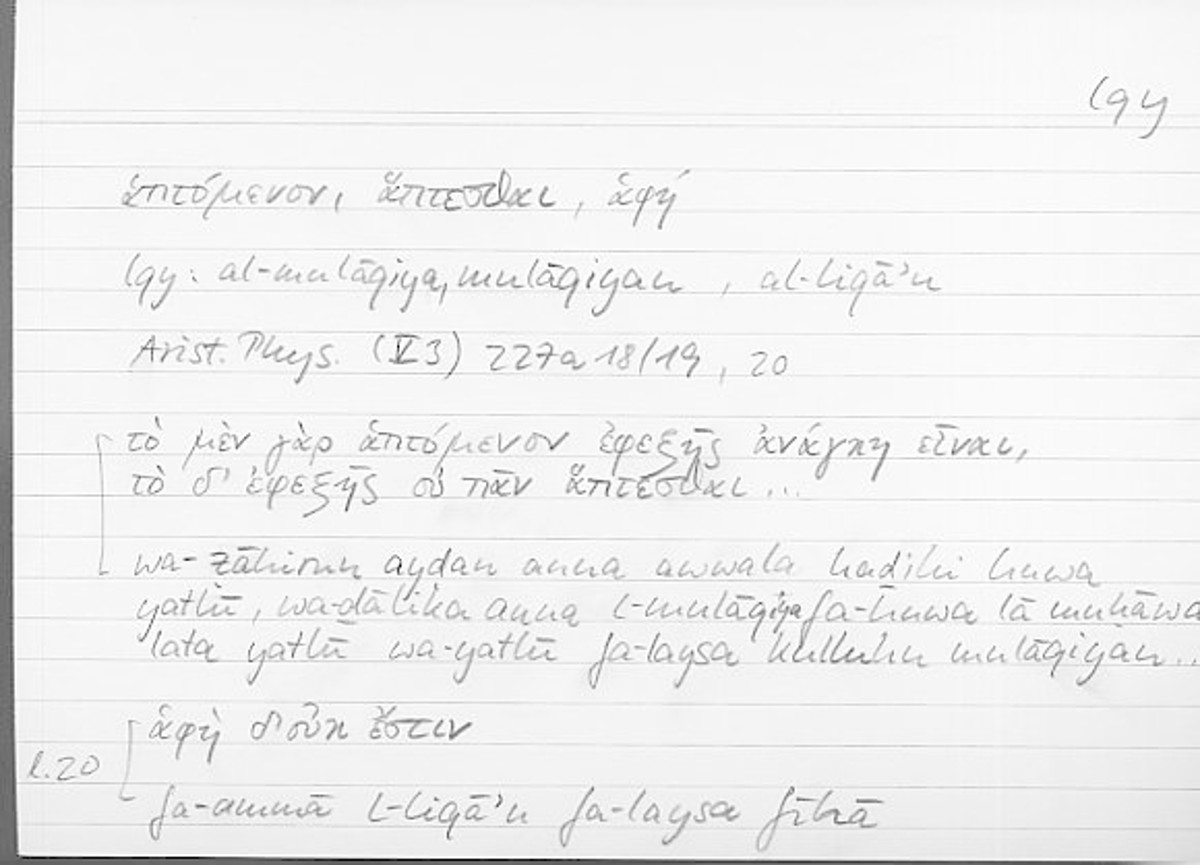 lqy
ἁπτόμενον, ἅπτεσθαι, ἁφή
lqy: al-mulāqiya, mulāqiyan, al-liqā’u
Arist. Phys. (V 3) 227a 18/19, 20
τὸ μὲν γὰρ ἁπτόμενον ἐφεξῆς ἀνάγκη εἶναι,
τὸ δ’ ἐφεξῆς οὐ πᾶν ἅπτεσθαι...
wa-ẓāhirun ayḍan anna awwala hāḏihi huwa
yatlū, wa-ḏālika anna l-mulāqiya fa-huwa lā muḥāwa
lata yatlū wa-yatlū fa-laysa kulluhu mulāqiyan...
ἁφὴ δ’ οὐκ ἔστιν
l. 20
fa-ammā l-liqā’u fa-laysa fīhā